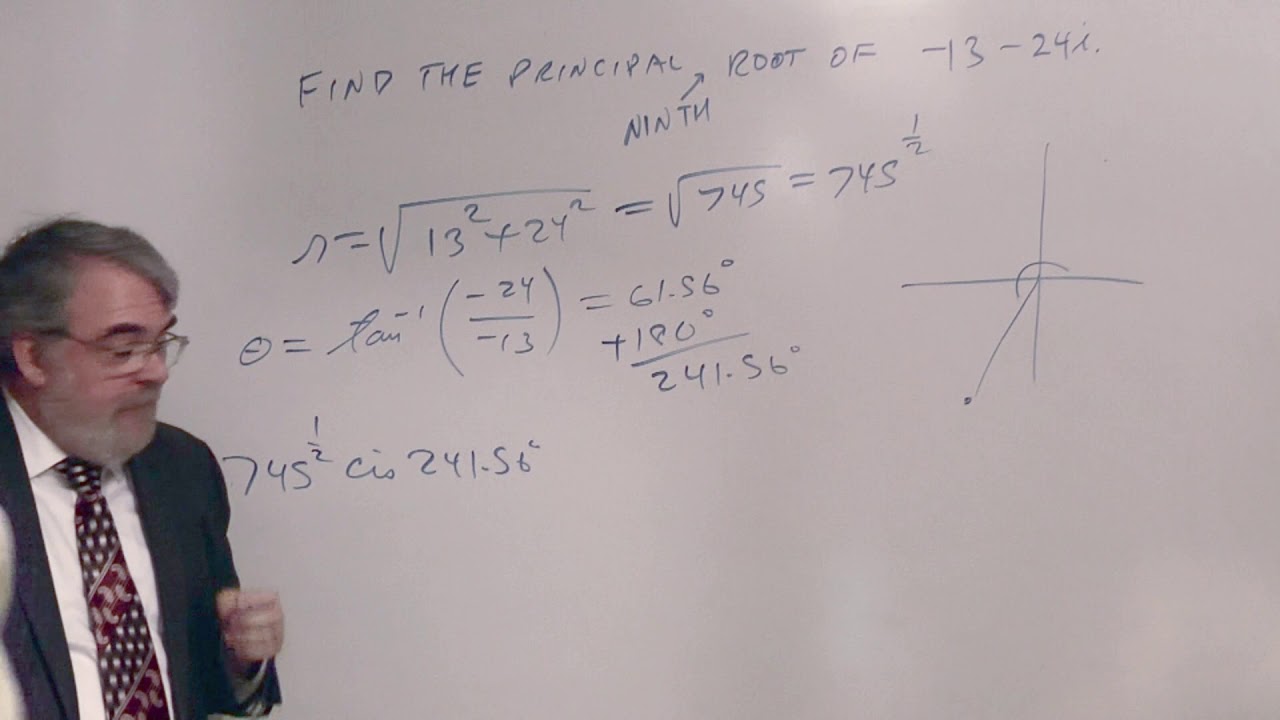 FIND THE PRINCIPAL ROOT OF -13-24i.
NINTH
r=√(13²+24²) = √745 = 745^(1/2)
θ = tan⁻¹(-24/-13) = 61.56°
+180°
241.56°
745^(1/2) cis 241.56°